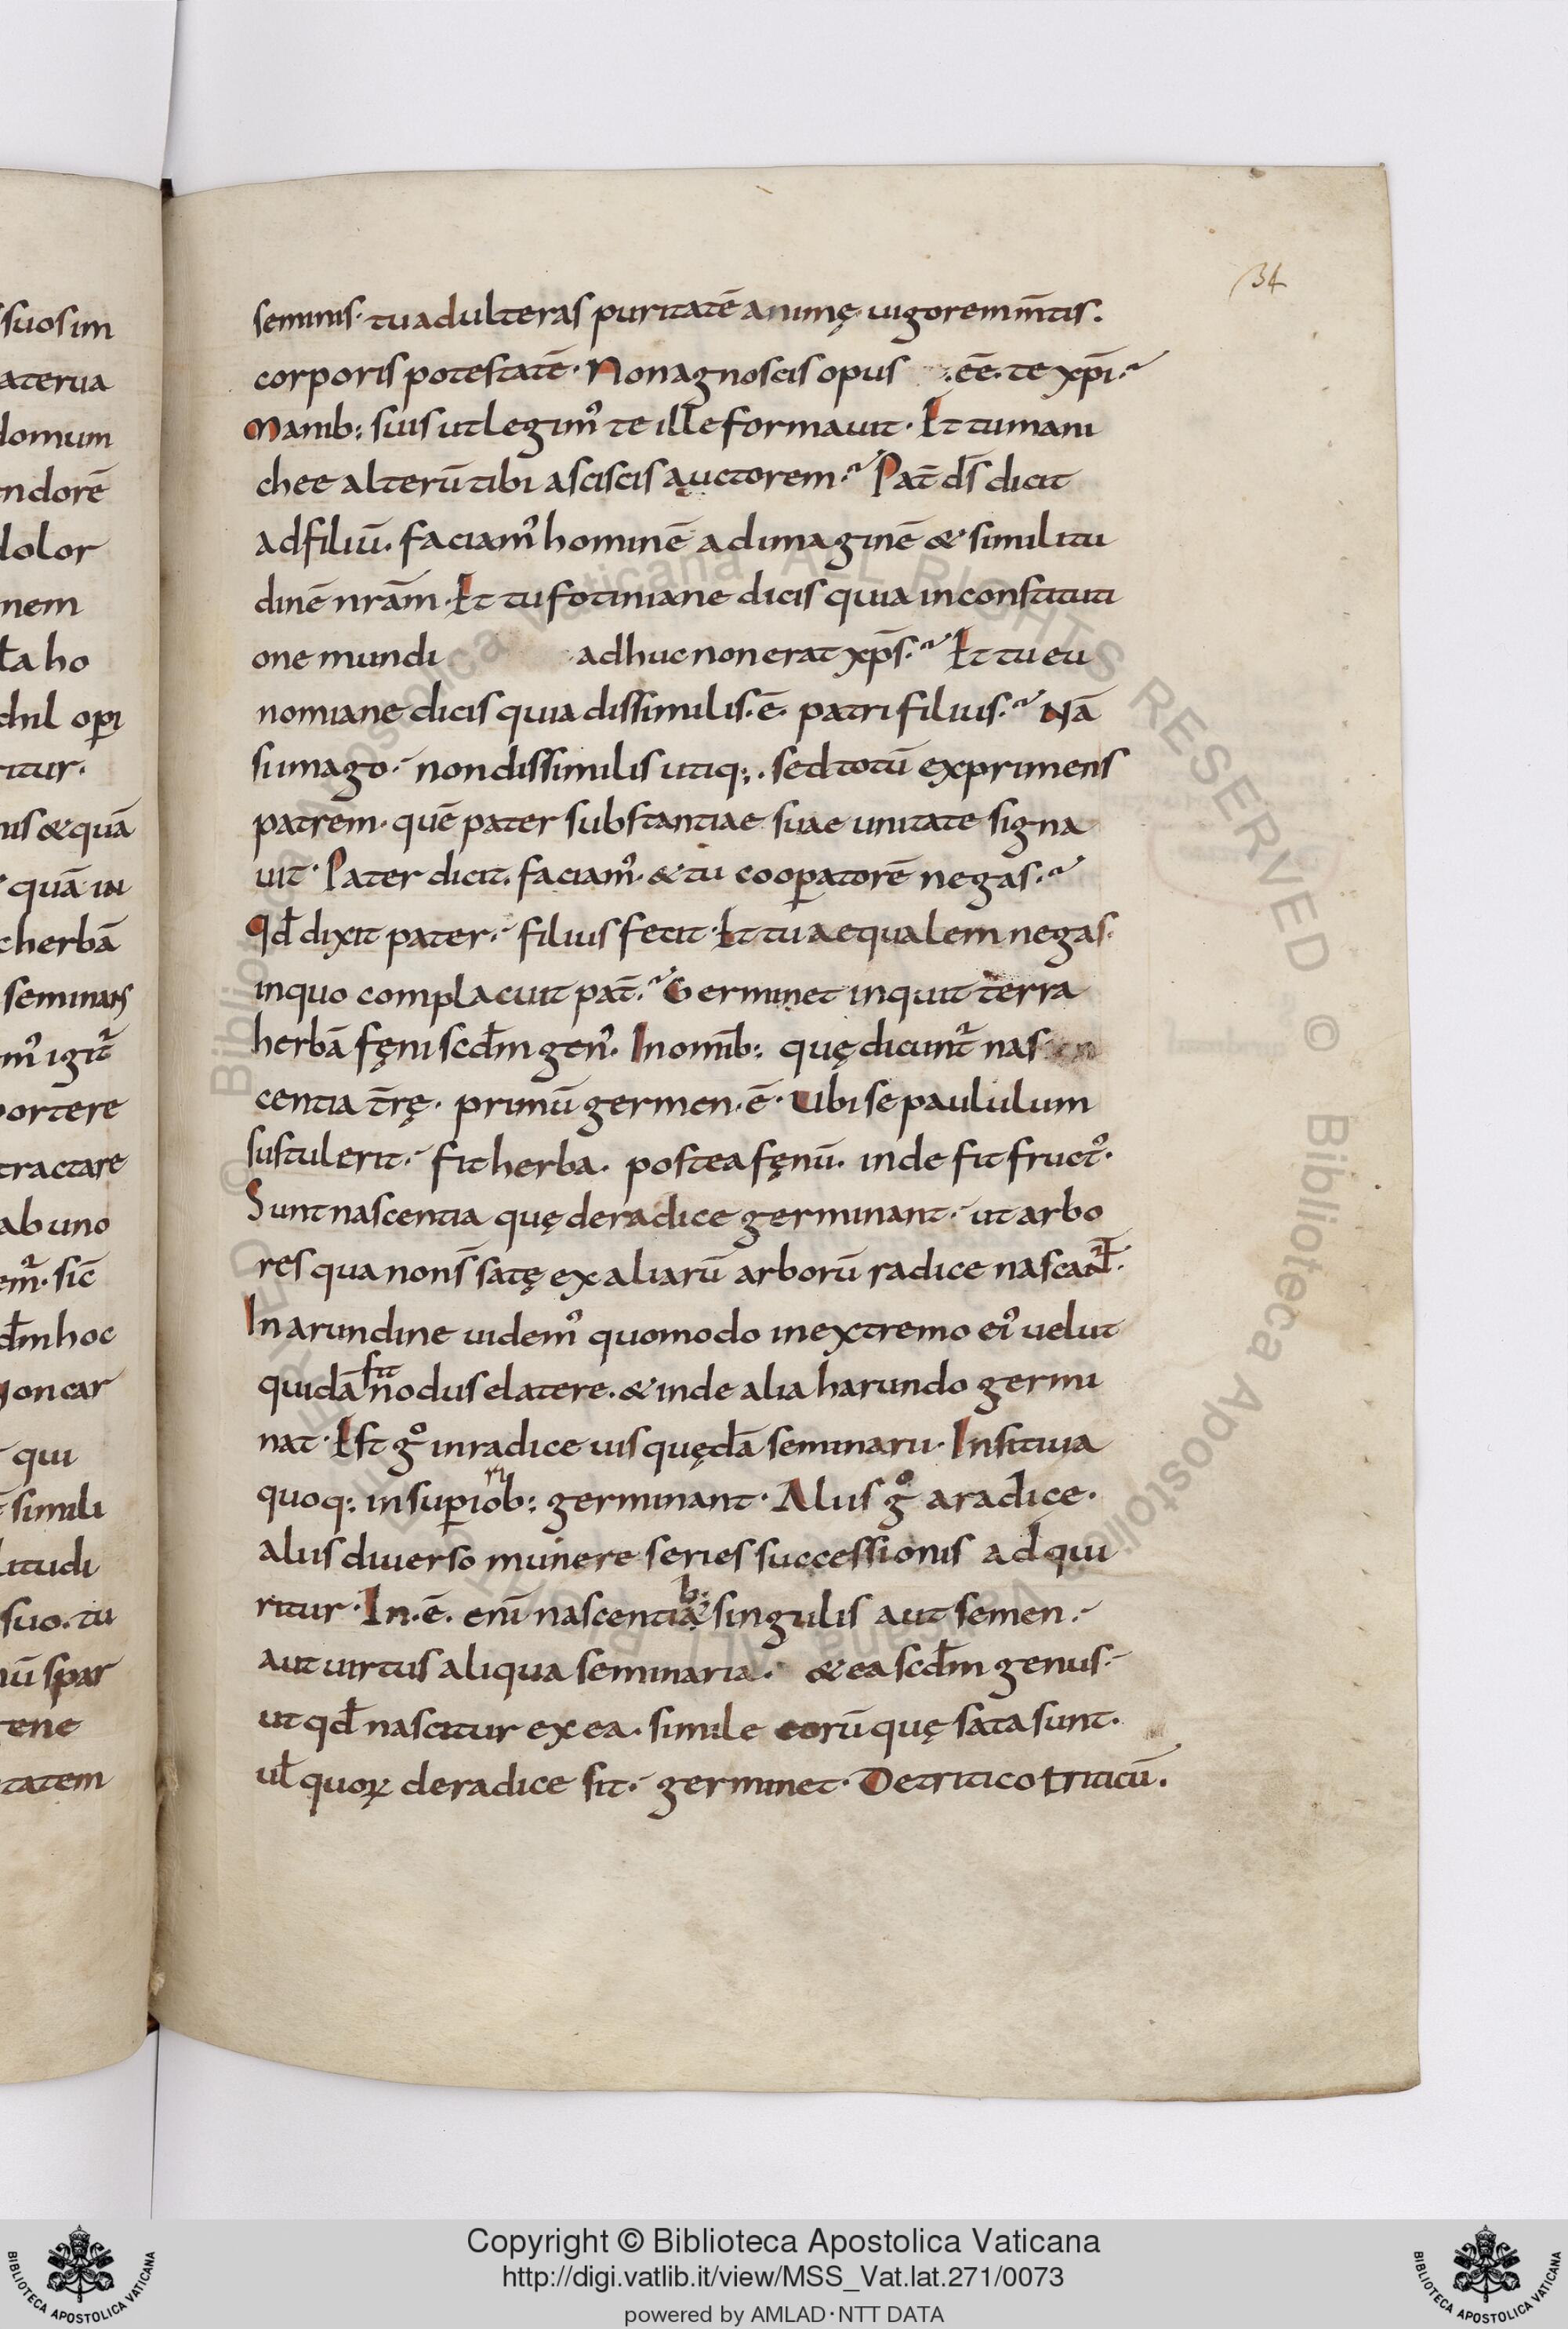 34
seminis· tu adulteras puritatē animę· uigorem m̄tis.
corporis potestatē· Non agnoscis opus .eē. te xp̄i·
Manib: suis ut legim᾿ te ille formauit· Et tu mani
chee alterū tibi asciscis auctorem· Pat̄ d̄s dicit
ad filiū. faciam᾿ hominē ad imaginē & similitu
dinē nrām· Et tu fotiniane dicis quia in constituti
one mundi adhuc non erat xp̄s· Et tu eu
nomiane dicis quia dissimilis·ē· patri filius· Nā
si imago· non dissimilis utiq:. sed totū exprimens
patrem· quē pater substantiae suae unitate signa
uit· Pater dicit. faciam᾿· & tu cooꝑatorē negas·
Qđ dixit pater· filius fecit· Et tu aequalem negas·
in quo complacuit pat̄· Germinet inquit terra
herbā fęni scđm gen᾿· In omīb: quę dicunt᾿ nas
centia t̄rę· primū germen·ē· Ubi se paululum
sustulerit· fit herba· postea fęnū· inde fit fruct᾿·
Sunt nascentia quę de radice germinant· ut arbo
res qua non s̄ satę ex aliarū arborū radice nascant᾿·
In arundine uidem᾿ quomodo in extremo ei᾿ uelut
quidā fit nodus e latere· & inde alia harundo germi
nat· Est gͦ in radice uis quędā seminarii· Insitiua
quoq: in suꝑiorib: germinant· Aliis gͦ a radice·
aliis diuerso munere series successionis adqui
ritur· In·ē· eni nascentiab: singulis aut semen·
aut uirtus aliqua seminaria· & ea scđm genus·
ut qđ nascitur ex ea· simile eorū quę sata sunt·
uł quoꝝ de radice sit· germinet· De tritico triticū.
suos im
aterua
domum
endorē
dolor
nem
ho
opi
itur·
nis & quā
quā in
herbā
seminans
m᾿ igit᾿
portere
tractare
ab uno
em᾿· sic
đm hoc
non car
qui
simili
litudi
suo· tu
spar
tatem
Copyright © Biblioteca Apostolica Vaticana
http://digi.vatlib.it/view/MSS_Vat.lat.271/0073
powered by AMLAD·NTT DATA
BIBLIOTECA APOSTOLICA VATICANA
BIBLIOTECA APOSTOLICA VATICANA